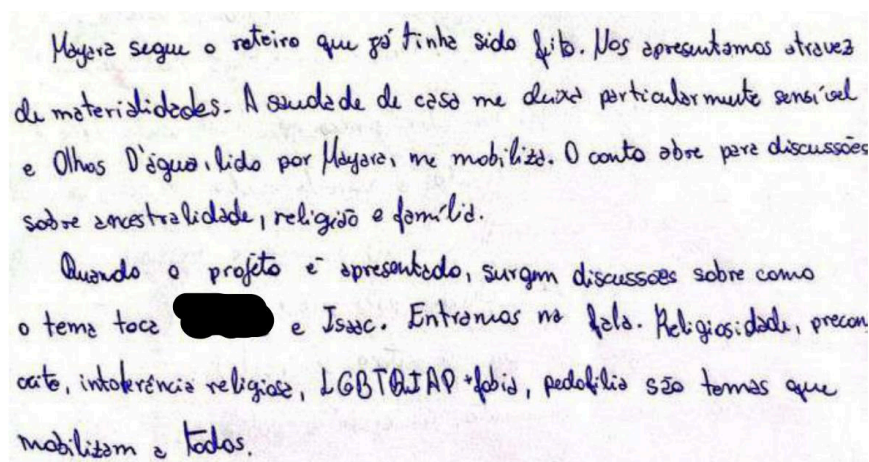 Mayara segue o roteiro que já tinha sido feito. Nos apresentamos atravez
de materialidades. A saudade de casa me deixa particularmente sensível
e Olhos D'água, lido por Mayara, me mobiliza. O conto abre para discussões
sobre ancestralidade, religião e família.
Quando o projeto é apresentado, surgem discussões sobre como
o tema toca e Isaac. Entramos na fala. Religiosidade, precon
ceito, intolerância religiosa, LGBTQIAP+fobia, pedofilia são temas que
mobilizam a todos.